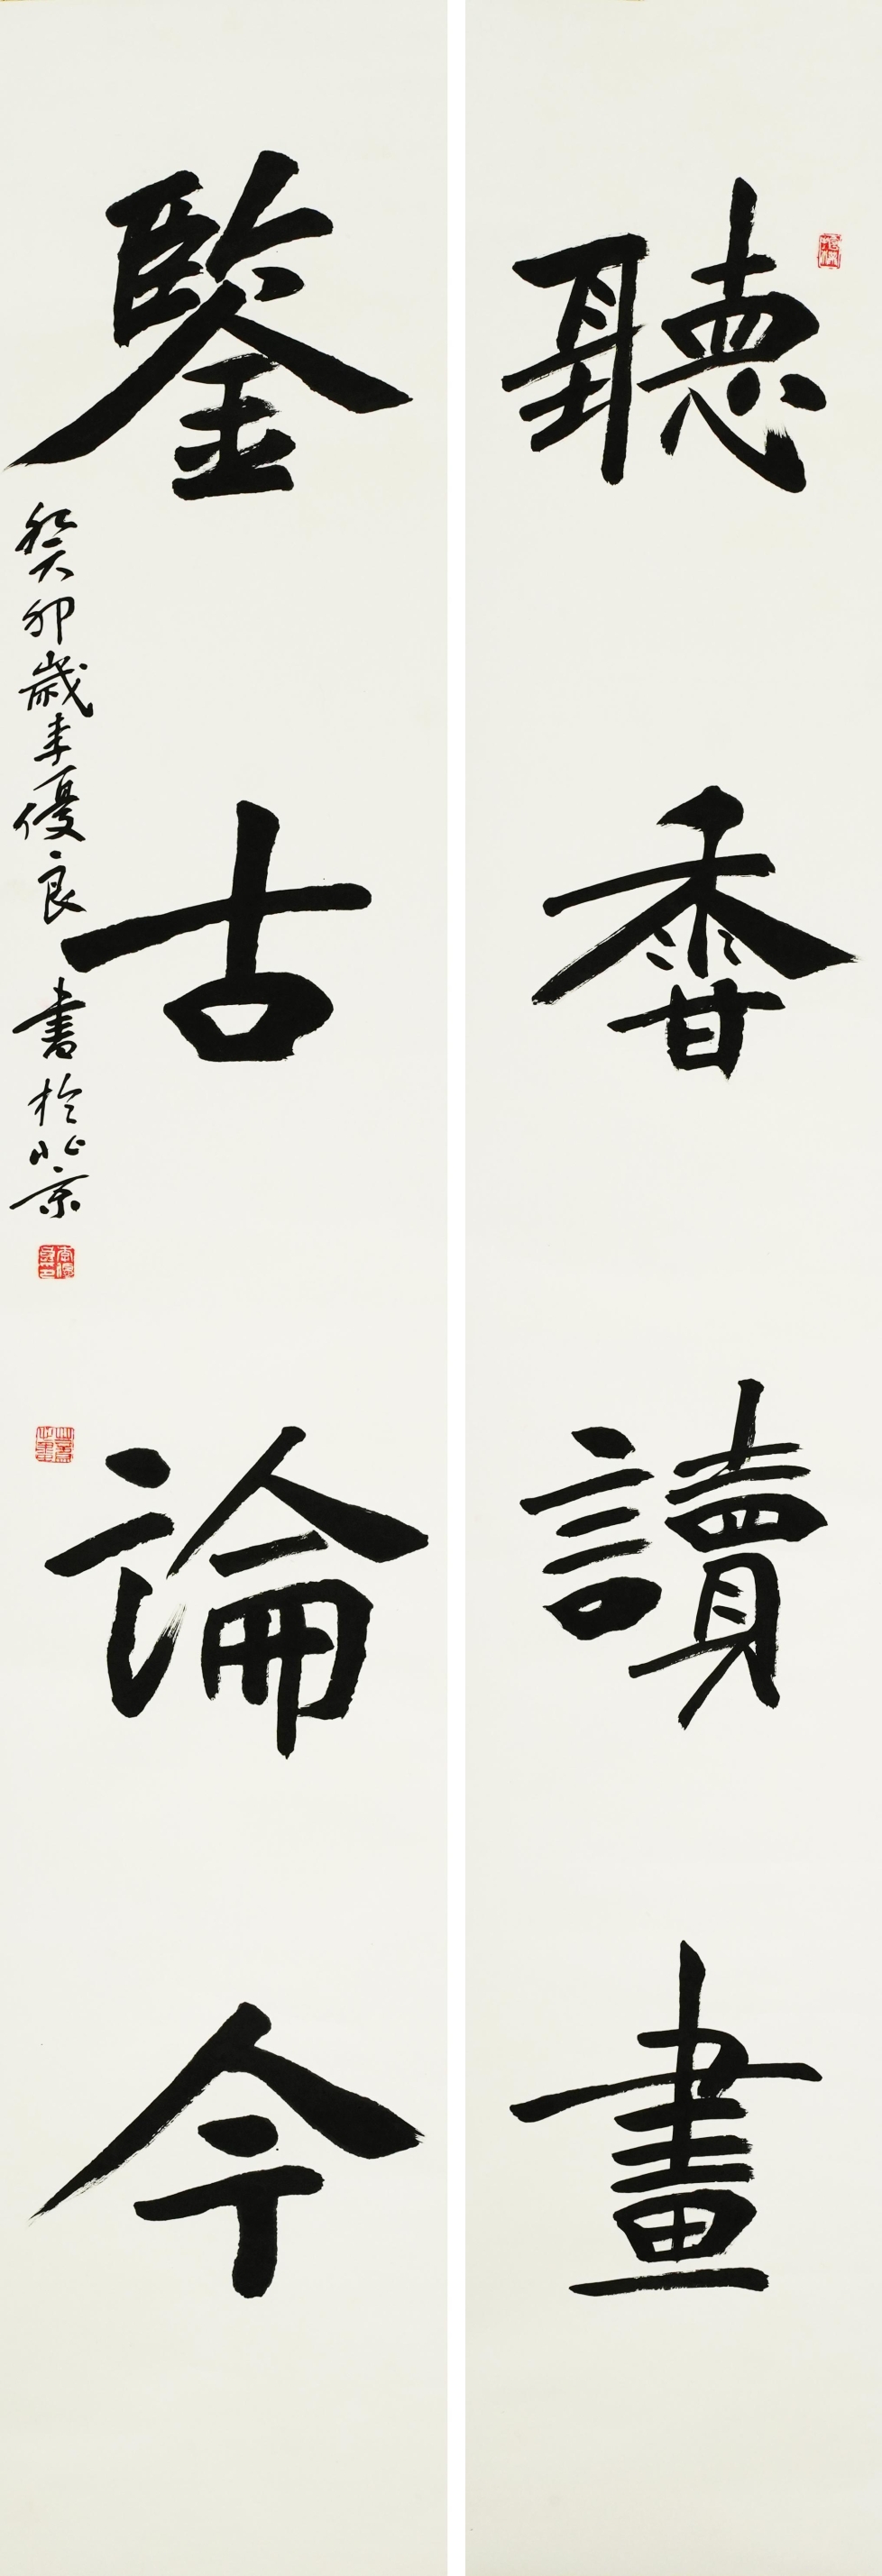 聽香讀畫
鑒古論今
癸卯歲李優良書於北京